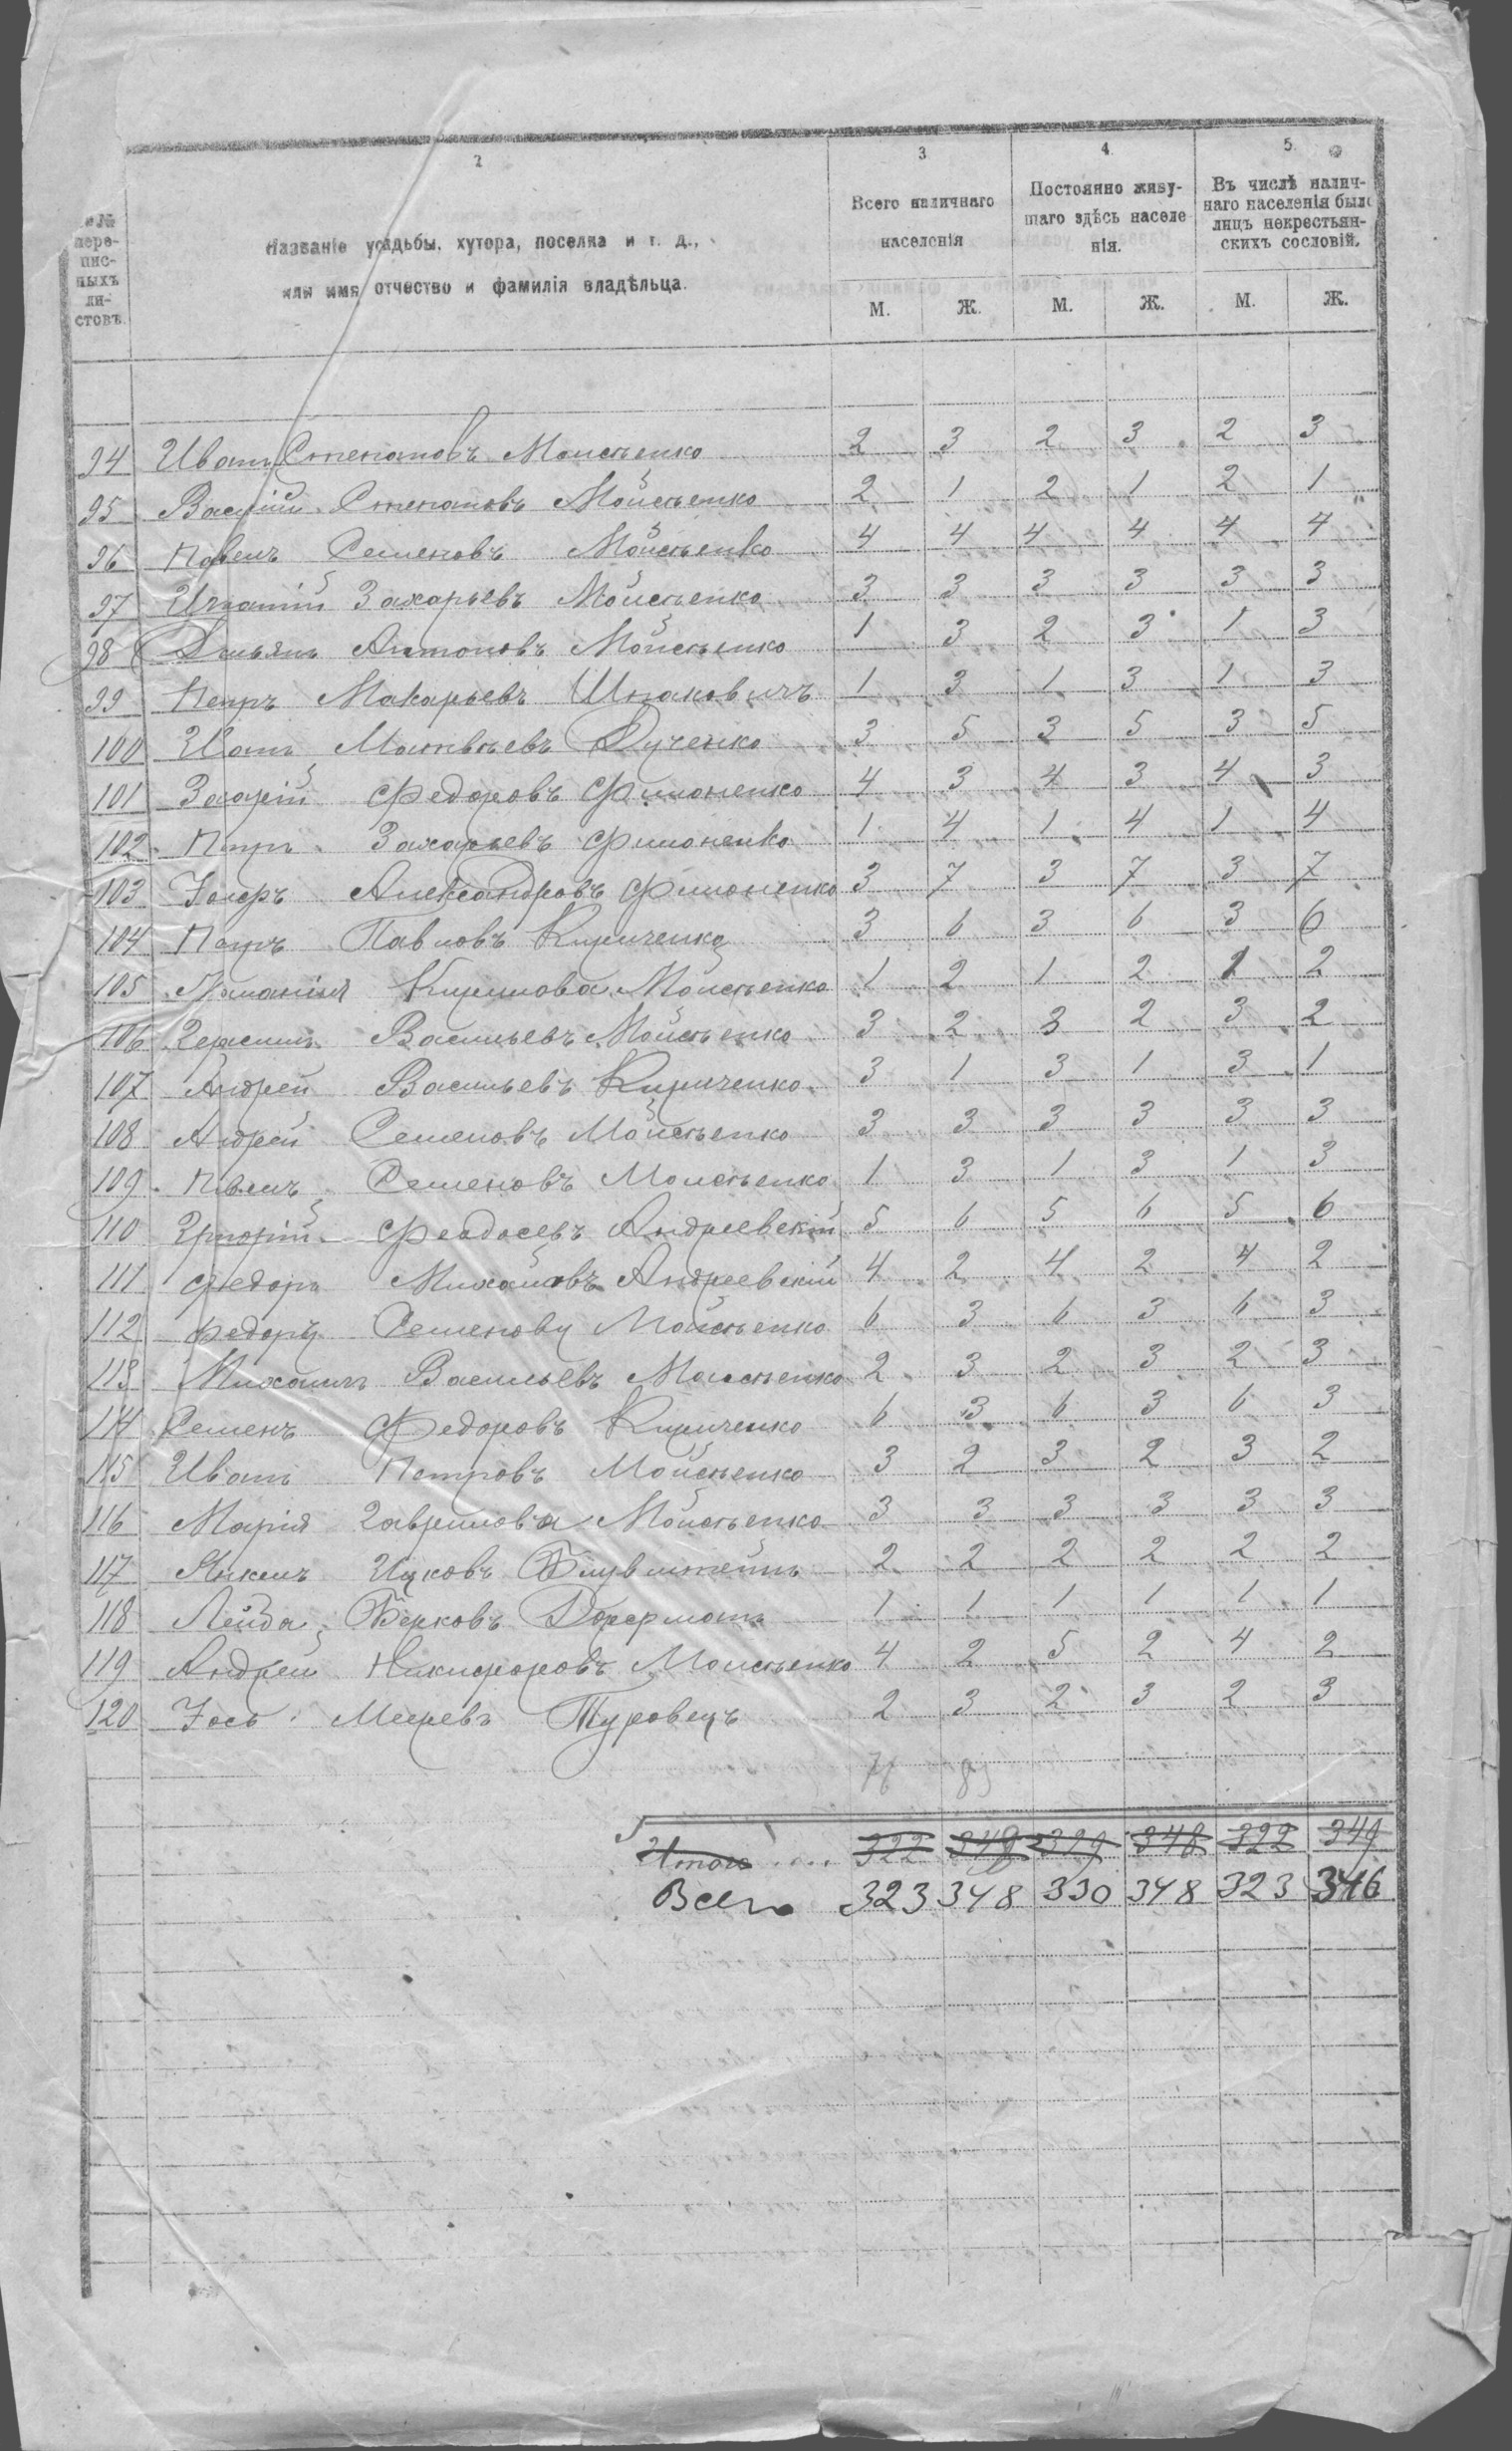 2
3
4.
5.
№№ пере- пис- ныхъ ли- стовъ.
Названіе усадьбы, хутора, поселка и т. д.,
или имя, отчество и фамилія владѣльца.
Всего наличнаго населенія
Постоянно живу- щаго здѣсь населе нія.
Въ числѣ налич- наго населенія было лицъ некрестьян- скихъ сословій.
М. Ж. М. Ж. М. Ж.
94 Иванъ Степановъ Моисѣенко 2 3 2 3 2 3
95 Василій Степановъ Мойсѣенко 2 1 2 1 2 1
96 Павелъ Семеновъ Мойсѣенко 4 4 4 4 4 4
97 Игнатій Захарьевъ Мойсѣенко 3 3 3 3 3 3
98 Демьянъ Антоновъ Мойсѣенко 1 3 2 3 1 3
99 Петръ Макарьевъ Шпаковичъ 1 3 1 3 1 3
100 Иванъ Матвѣевъ Дученко 3 5 3 5 3 5
101 Захарій Федоровъ Филоненко 4 3 4 3 4 3
102 Петръ Захарьевъ Филоненко 1 4 1 4 1 4
103 Александровъ Филоненко 3 7 3 7 3 7
104 Петръ Павловъ Кириченко 3 6 3 6 3 6
105 Кирилова Мойсѣенко 1 2 1 2 1 2
106 Герасимъ Васильевъ Мойсѣенко 3 2 3 2 3 2
107 Андрей Васильевъ Кириченко 3 1 3 1 3 1
108 Андрей Семеновъ Мойсѣенко 3 3 3 3 3 3
109 Павелъ Семеновъ Моисѣенко 1 3 1 3 1 3
110 Григорій Феодосевъ Андреевскій 5 6 5 6 5 6
111 Федоръ Михайловъ Андреевскій 4 2 4 2 4 2
112 Федоръ Семеновъ Мойсѣенко 6 3 6 3 6 3
113 Михаилъ Васильевъ Моисѣенко 2 3 2 3 2 3
114 Семенъ Федоровъ Кириченко 6 3 6 3 6 3
115 Иванъ Петровъ Мойсѣенко 3 2 3 2 3 2
116 Марія Гаврилова Мойсѣенко 3 3 3 3 3 3
117 Янкель Ицковъ Блувштейнъ 2 2 2 2 2 2
118 Лейба Берковъ 1 1 1 1 1 1
119 Андрей Никифоровъ Моисѣенко 4 2 5 2 4 2
120 Іось Мееревъ Туровецъ 2 3 2 3 2 3
76 89
Итого .... 322 349 329 348 322 349
Всего 323 348 330 348 323 346